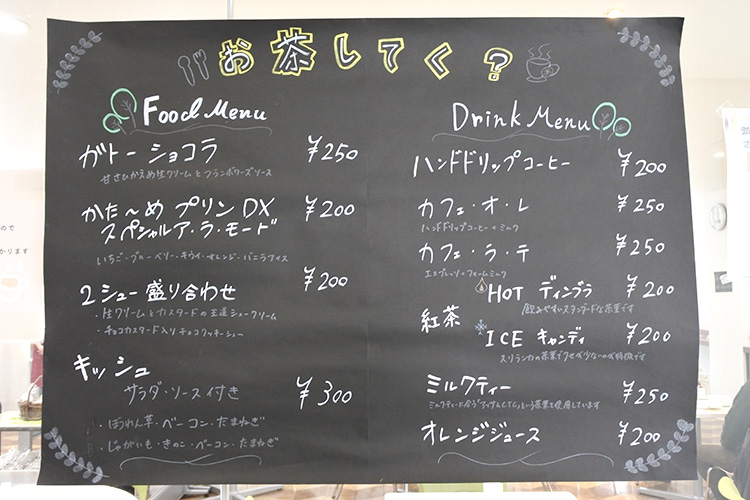 お茶してく?
Food Menu
ガトーショコラ ¥250
甘さひかえめ生クリームとフランボワーズソース
かた〜めプリンDX ¥200
スペシャルア・ラ・モード
いちご・ブルーベリー・キウイ・オレンジ・バニラアイス
2シュー盛り合わせ ¥200
・生クリームとカスタードの王道シュークリーム
・チョコカスタード入りチョコクッキーシュー
キッシュ
サラダ・ソース付き ¥300
・ほうれん草・ベーコン・たまねぎ
・じゃがいも・きのこ・ベーコン・たまねぎ
Drink Menu
ハンドドリップコーヒー ¥200
カフェ・オ・レ ¥250
ハンドドリップコーヒー+ミルク
カフェ・ラ・テ ¥250
エスプレッソ+フォームミルク
紅茶
HOT ディンブラ ¥200
飲みやすいスタンダードな茶葉です
ICE キャンディ ¥200
スリランカの茶葉でクセが少ないのが特徴です
ミルクティー ¥250
ミルクティーに合う"アッサムCTC"という茶葉を使用しています
オレンジジュース ¥200
ので
かります